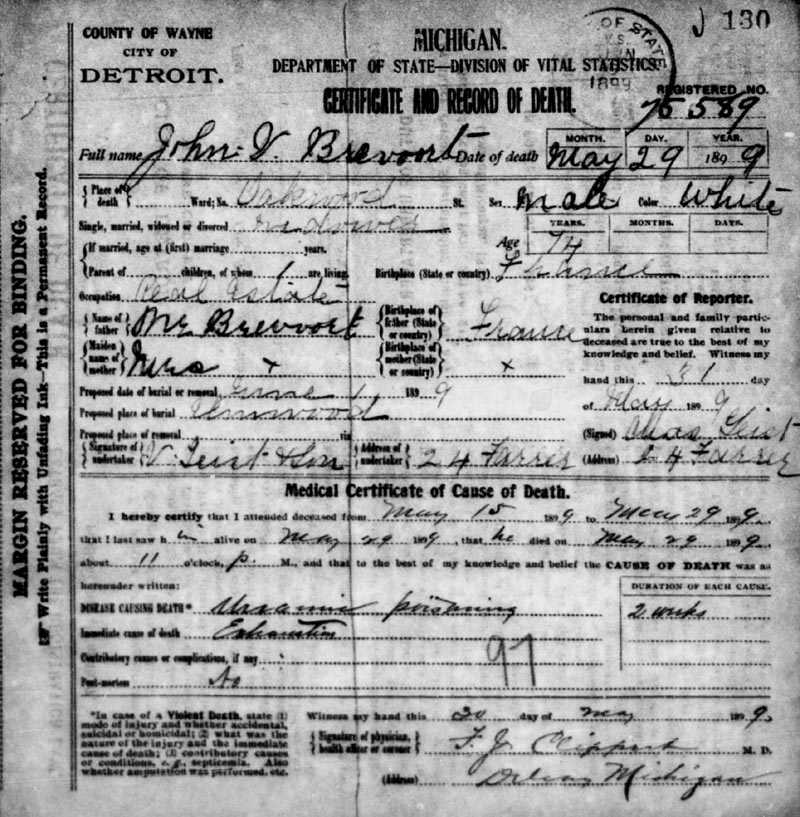 J 130
COUNTY OF WAYNE
CITY OF
DETROIT.
MICHIGAN.
DEPARTMENT OF STATE—DIVISION OF VITAL STATISTICS.
CERTIFICATE AND RECORD OF DEATH.
OF STATE
1899
REGISTERED NO.
75589
Full name John V. Brevoort Date of death
MONTH. DAY. YEAR.
May 29 1899
Place of death Ward; No. Oakwood St. Sex Male Color White
Single, married, widowed or divorced Widowed
If married, age at (first) marriage years.
Age YEARS. MONTHS. DAYS.
74
Parent of children, of whom 1 are living. Birthplace (State or country) France
Occupation Real Estate
Name of father Mr Brevoort Birthplace of father (State or country) France
Maiden name of mother Mrs x Birthplace of mother (State or country) x
Proposed date of burial or removal June 1 1899
Proposed place of burial Elmwood
Proposed place of removal via
Signature of undertaker V. Geist & Son Address of undertaker 24 Farrer
Certificate of Reporter.
The personal and family particulars herein given relative to
deceased are true to the best of my
knowledge and belief. Witness my
hand this 31 day
of May 1899
(Signed) Chas Geist
(Address) 24 Farrer
Medical Certificate of Cause of Death.
I hereby certify that I attended deceased from May 15 1899 to May 29 1899,
that I last saw him alive on May 29 1899, that he died on May 29 1899
about 11 o'clock, P. M., and that to the best of my knowledge and belief the CAUSE OF DEATH was as
hereunder written:
DURATION OF EACH CAUSE.
DISEASE CAUSING DEATH* Uraemic poisoning 2 weeks
Immediate cause of death Exhaustion
Contributory causes or complications, if any
97
Post-mortem No
*In case of a Violent Death, state (1)
mode of injury and whether accidental,
suicidal or homicidal; (2) what was the
nature of the injury and the immediate
cause of death; (3) contributory causes
or conditions, e. g., septicemia. Also
whether amputation was performed, etc.
Witness my hand this 30 day of May 1899.
Signature of physician, health officer or coroner F. J. Clippert M. D.
(Address) Michigan
MARGIN RESERVED FOR BINDING.
Write Plainly with Unfading Ink—This is a Permanent Record.